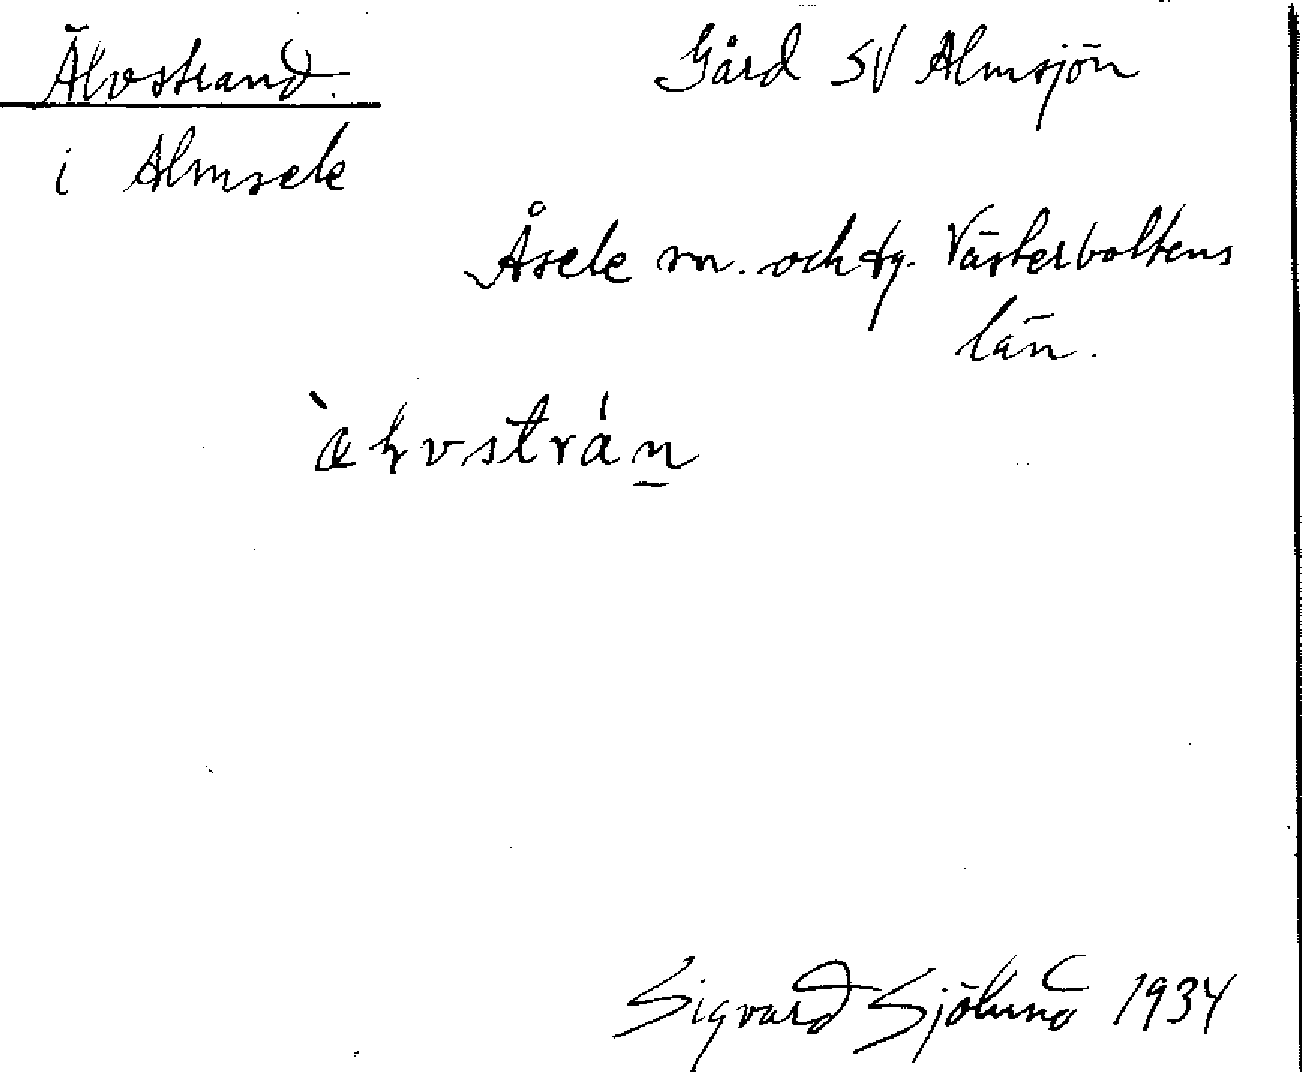 Älvstrand. Gård SV Almsjön
i Almsele
Åsele sn. och tg. Västerbottens
län.
Sigvard Sjölund 1934